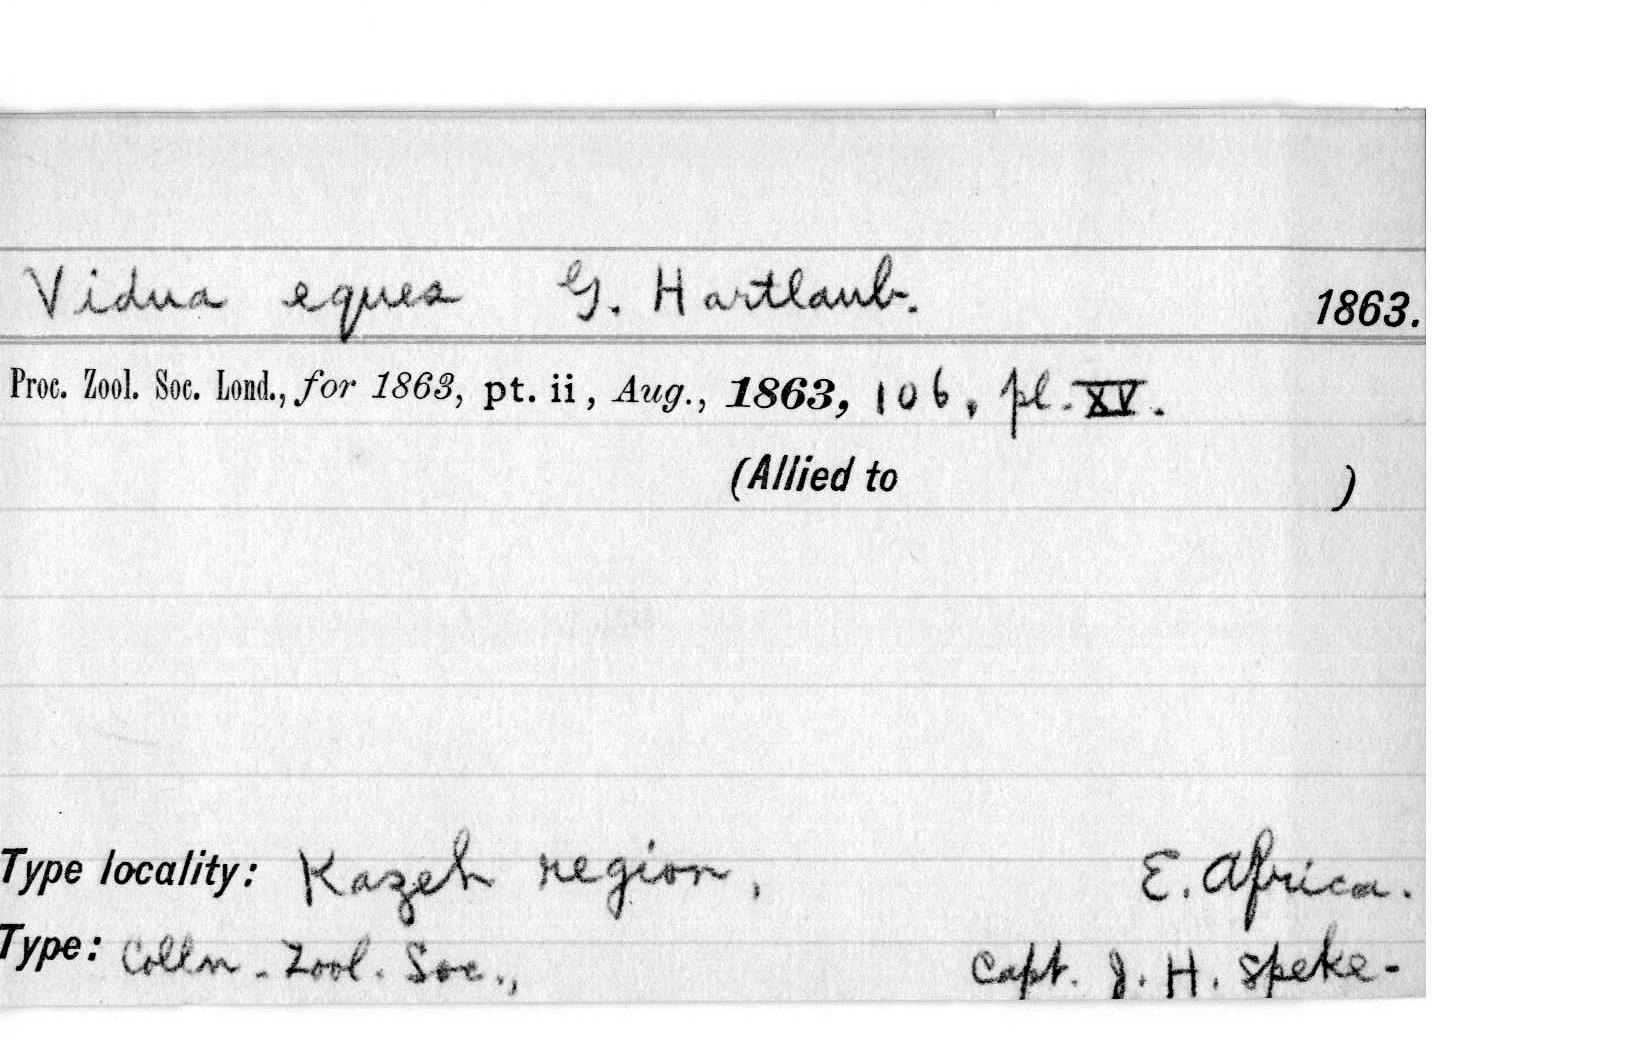 Vidua eques G. Hartlaub. 1863.
Proc. Zool. Soc. Lond., for 1863, pt. ii, Aug., 1863, 106, pl. XV.
(Allied to )
Type locality: Kazeh region, E. Africa.
Type: Colln. Zool. Soc., Capt. J. H. Speke-